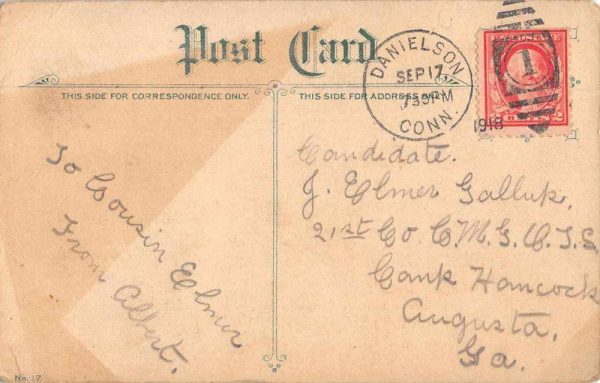 Post Card
THIS SIDE FOR CORRESPONDENCE ONLY.
THIS SIDE FOR ADDRESS ONLY.
DANIELSON
SEP 17
730 PM
CONN.
1918
1
To Cousin Elmer
From Albert.
Candidate.
J. Elmer Gallup,
21st Co C.M.G.O.T.S.
Camp Hancock
Augusta,
Ga.
No. 17